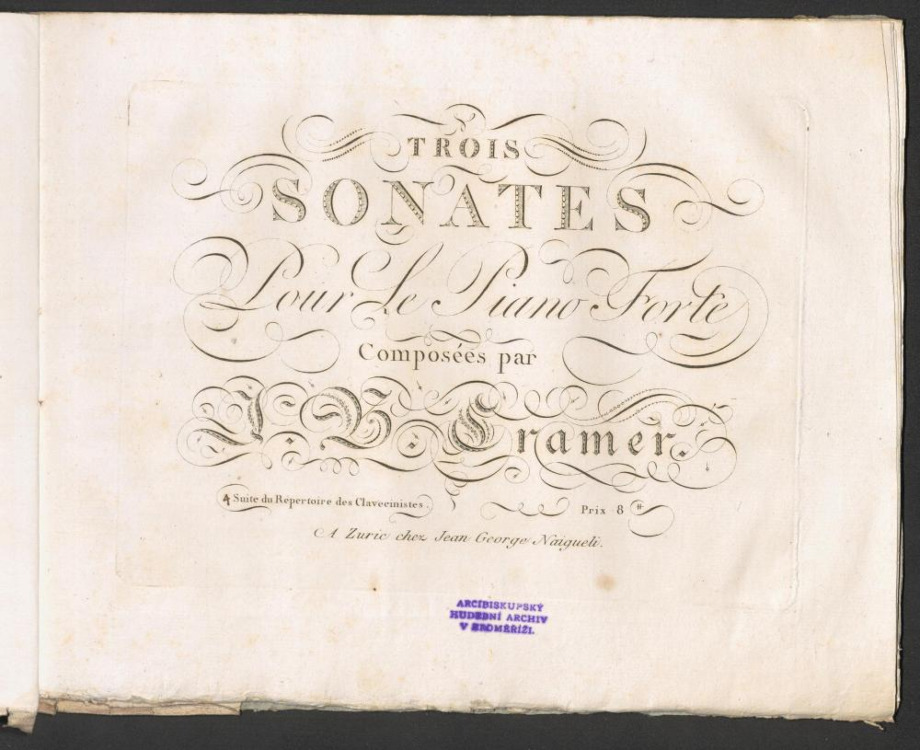 TROIS
SONATES
Pour Le Piano Forte
Composées par
J. B. Cramer.
4 Suite du Répertoire des Clavecinistes.
Prix 8 #
A Zuric chez Jean George Naigueli.
ARCIBISKUPSKÝ
HUDEBNÍ ARCHIV
V KROMĚŘÍŽI.